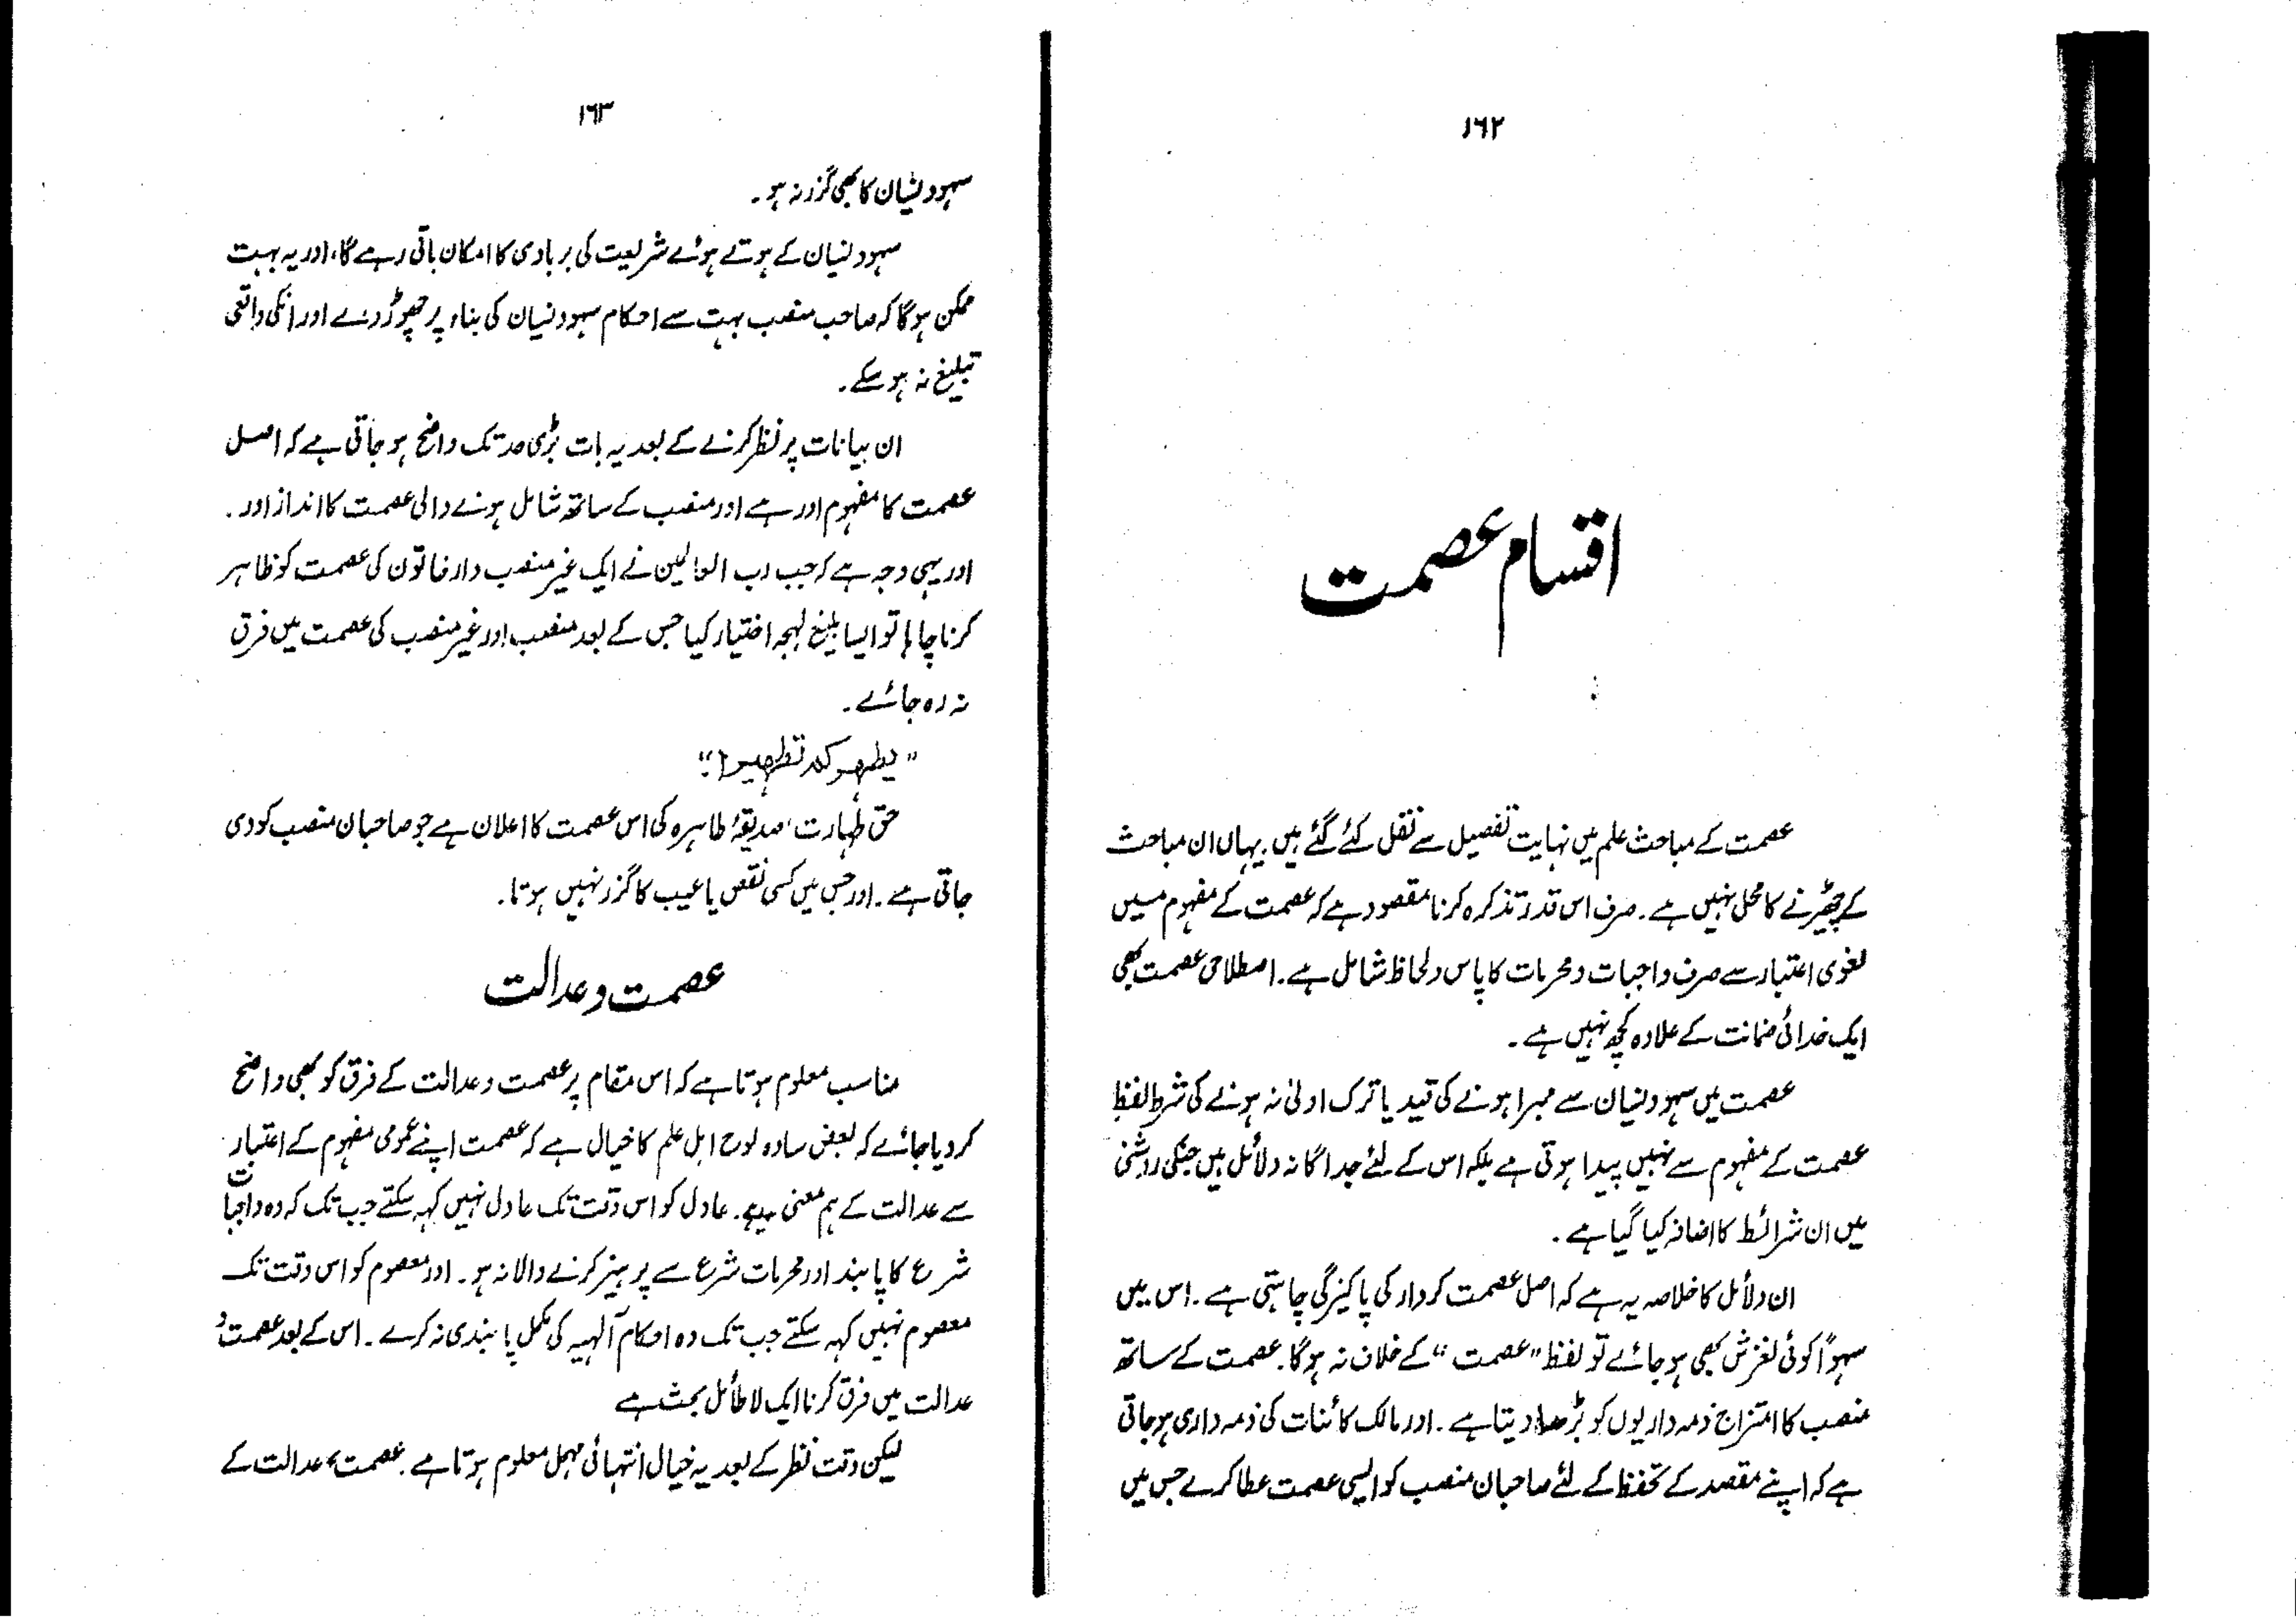 ۱۶۲
اقسام عصمت
عصمت کے مباحث علم میں نہایت تفصیل سے نقل کئے گئے ہیں. یہاں ان مباحث
کے چھیڑنے کا محل نہیں ہے. صرف اس قدر تذکرہ کرنا مقصود ہے کہ عصمت کے مفہوم میں
لغوی اعتبار سے صرف واجبات و محرمات کا پاس و لحاظ شامل ہے. اصطلاحی عصمت بھی
ایک خدائی ضمانت کے علاوہ کچھ نہیں ہے.
عصمت میں سہو و نسیان سے مبرا ہونے کی قید یا ترک اولیٰ نہ ہونے کی شرط لفظ
عصمت کے مفہوم سے نہیں پیدا ہوتی ہے بلکہ اس کے لئے جدا گانہ دلائل ہیں جنکی روشنی
میں ان شرائط کا اضافہ کیا گیا ہے.
ان دلائل کا خلاصہ یہ ہے کہ اصل عصمت کردار کی پاکیزگی چاہتی ہے. اس میں
سہواً کوئی لغزش بھی ہو جائے تو لفظ "عصمت" کے خلاف نہ ہوگا. عصمت کے ساتھ
منصب کا امتزاج ذمہ داریوں کو بڑھا دیتا ہے. اور مالک کائنات کی ذمہ داری ہو جاتی
ہے کہ اپنے مقصد کے تحفظ کے لئے صاحبان منصب کو ایسی عصمت عطا کرے جس میں
۱۶۳
سہو و نسیان کا بھی گزر نہ ہو.
سہو و نسیان کے ہوتے ہوئے شریعت کی بربادی کا امکان باقی رہے گا، اور یہ بہت
ممکن ہوگا کہ صاحب منصب بہت سے احکام سہو و نسیان کی بناء پر چھوڑ دے اور انکی واقعی
تبلیغ نہ ہو سکے.
ان بیانات پر نظر کرنے کے بعد یہ بات بڑی حد تک واضح ہو جاتی ہے کہ اصل
عصمت کا مفہوم اور ہے اور منصب کے ساتھ شامل ہونے والی عصمت کا انداز اور.
اور یہی وجہ ہے کہ جب رب العالمین نے ایک غیر منصب دار خاتون کی عصمت کو ظاہر
کرنا چاہا تو ایسا بلیغ لہجہ اختیار کیا جس کے بعد منصب اور غیر منصب کی عصمت میں فرق
نہ رہ جائے.
"یطہرکم تطہیرا"
حق طہارت، صدیقۂ طاہرہ کی اس عصمت کا اعلان ہے جو صاحبان منصب کو دی
جاتی ہے. اور جس میں کسی نقص یا عیب کا گزر نہیں ہوتا.
عصمت و عدالت
مناسب معلوم ہوتا ہے کہ اس مقام پر عصمت و عدالت کے فرق کو بھی واضح
کر دیا جائے کہ بعض سادہ لوح اہل علم کا خیال ہے کہ عصمت اپنے عمومی مفہوم کے اعتبار
سے عدالت کے ہم معنی ہے. عادل کو اس وقت تک عادل نہیں کہہ سکتے جب تک کہ وہ واجبات
شرع کا پابند اور محرمات شرع سے پرہیز کرنے والا نہ ہو. اور معصوم کو اس وقت تک
معصوم نہیں کہہ سکتے جب تک وہ احکام آلہیہ کی مکمل پابندی نہ کرے. اس کے بعد عصمت و
عدالت میں فرق کرنا ایک لا طائل بحث ہے
لیکن دقت نظر کے بعد یہ خیال انتہائی مہمل معلوم ہوتا ہے. عصمت، عدالت کے